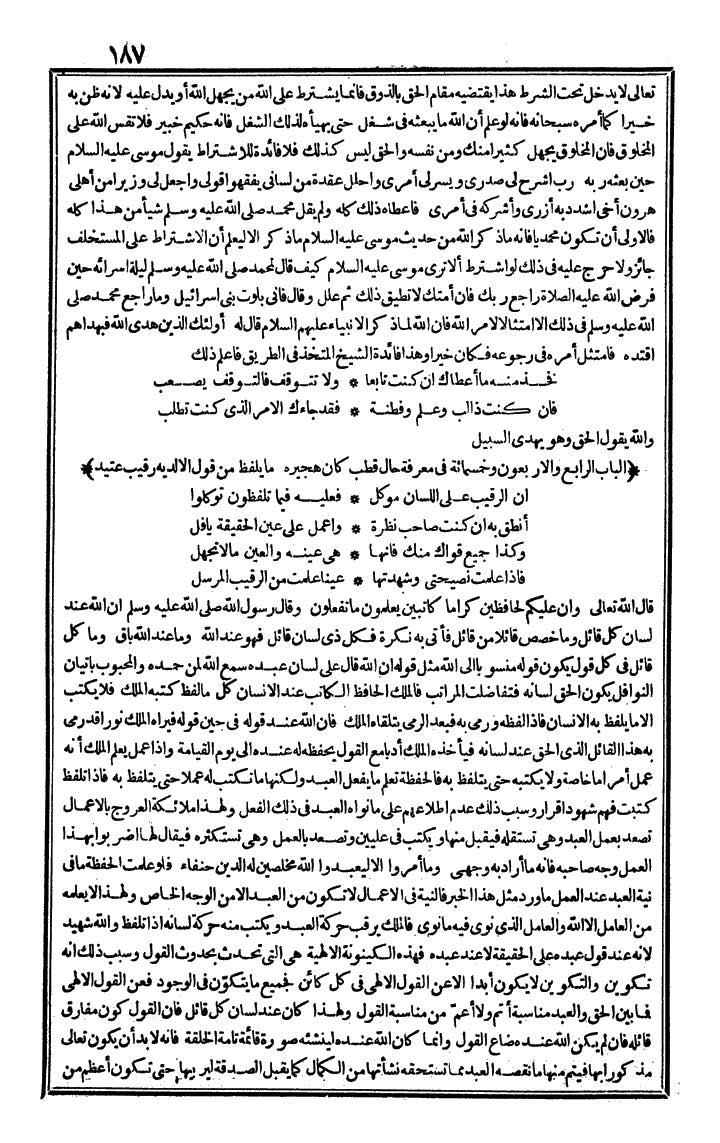 ١٨٧
تعالى لا يدخل تحت الشرط هذا يقتضيه مقام الحق بالذوق فانما يشترط على الله من يجهل الله أو يدل عليه لانه ظن به
خيرا كما أمره سبحانه فانه لو علم أن الله ما يبعثه فى شغل حتى يهيأه لذلك الشغل فانه حكيم خبير فلا تقس الله على
المخلوق فان المخلوق يجهل كثيرا منك ومن نفسه والحق ليس كذلك فلا فائدة للاشتراط يقول موسى عليه السلام
حين بعثه ربه رب اشرح لى صدرى ويسر لى أمرى واحلل عقدة من لسانى يفقهوا قولى واجعل لى وزيرا من أهلى
هرون أخى اشدد به أزرى وأشركه فى أمرى فاعطاه ذلك كله ولم يقل محمد صلى الله عليه وسلم شيأ من هذا كله
فالاولى أن تكون محمديا فانه ما ذكر الله من حديث موسى عليه السلام ما ذكر الا ليعلم أن الاشتراط على المستخلف
جائز ولا حرج عليه فى ذلك لو اشترط ألا ترى موسى عليه السلام كيف قال لمحمد صلى الله عليه وسلم ليلة اسرائه حين
فرض الله عليه الصلاة راجع ربك فان أمتك لا تطيق ذلك ثم علل وقال فانى بلوت بنى اسرائيل وما راجع محمد صلى
الله عليه وسلم فى ذلك الا امتثالا لامر الله فان الله لما ذكر الانبياء عليهم السلام قال له أولئك الذين هدى الله فبهداهم
اقتده فامتثل أمره فى رجوعه فكان خيرا وهذا فائدة الشيخ المتخذ فى الطريق فاعلم ذلك
نخذ منه ما أعطاك ان كنت تابعا * ولا تتوقف فالتوقف يصعب
فان كنت ذا لب وعلم وفطنة * فقد جاءك الامر الذى كنت تطلب
والله يقول الحق وهو يهدى السبيل
﴿الباب الرابع والاربعون وخمسمائة فى معرفة حال قطب كان هجيره ما يلفظ من قول الا لديه رقيب عتيد﴾
ان الرقيب على اللسان موكل * فعليه فيما تلفظون توكلوا
أنطق به ان كنت صاحب نظرة * واعمل على عين الحقيقة يافل
وكذا جميع قواك منك فانها * هى عينه والعين مالا تجهل
فاذا علمت نصيحتى وشهدتها * عينا علمت من الرقيب المرسل
قال الله تعالى وان عليكم لحافظين كراما كاتبين يعلمون ما تفعلون وقال رسول الله صلى الله عليه وسلم ان الله عند
لسان كل قائل وما خصص قائلا من قائل فأتى به نكرة فكل ذى لسان قائل فهو عند الله وما عند الله باق وما كل
قائل فى كل قول يكون قوله منسوبا الى الله مثل قوله ان الله قال على لسان عبده سمع الله لمن حمده والمحبوب باتيان
النوافل يكون الحق لسانه فتفاضلت المراتب فالملك الحافظ الكاتب عند الانسان كل ما لفظ كتبه الملك فلا يكتب
الا ما يلفظ به الانسان فاذا لفظه ورمى به فبعد الرمى يتلقاه الملك فان الله عند قوله فى حين قوله فيراه الملك نورا قد رمى
به هذا القائل الذى الحق عند لسانه فيأخذه الملك أدبا مع القول يحفظه له عنده الى يوم القيامة واذا عمل يعلم الملك أنه
عمل أمرا ما خاصة ولا يكتبه حتى يتلفظ به فالحفظة تعلم ما يفعل العبد ولكنها ما تكتب له عملا حتى يتلفظ به فاذا تلفظ
كتبت فهم شهود اقرار وسبب ذلك عدم اطلاعهم على ما نواه العبد فى ذلك الفعل ولهذا ملائكة العروج بالاعمال
تصعد بعمل العبد وهى تستقله فيقبل منها ويكتب فى عليين وتصعد بالعمل وهى تستكثره فيقال لها اضربوا بهذا
العمل وجه صاحبه فانه ما أراد به وجهى وما أمروا الا ليعبدوا الله مخلصين له الدين حنفاء فلو علمت الحفظة ما فى
نية العبد عند العمل ما ورد مثل هذا الخبر فالنية فى الاعمال لا تكون من العبد الا من الوجه الخاص ولهذا لا يعلمه
من العامل الا الله والعامل الذى نوى فيه ما نوى فالملك يرقب حركة العبد ويكتب منه حركة لسانه اذا تلفظ والله شهيد
لانه عند قول عبده على الحقيقة لا عند عبده فهذه الكينونة الالهية هى التى تحدث بحدوث القول وسبب ذلك انه
تكوين والتكوين لا يكون أبدا الا عن القول الالهى فى كل كائن فجميع ما يتكوّن فى الوجود فعن القول الالهى
فما بين الحق والعبد مناسبة أتم ولا أعمّ من مناسبة القول ولهذا كان عند لسان كل قائل فان القول كون مفارق
قائله فان لم يكن الله عنده ضاع القول وانما كان الله عنده لينشئه صورة قائمة تامة الخلقة فانه لا بد أن يكون تعالى
مذكورا بها فيتم منها ما نقصه العبد مما تستحقه نشأتها من الكمال كما يقبل الصدقة ليربيها حتى تكون أعظم من